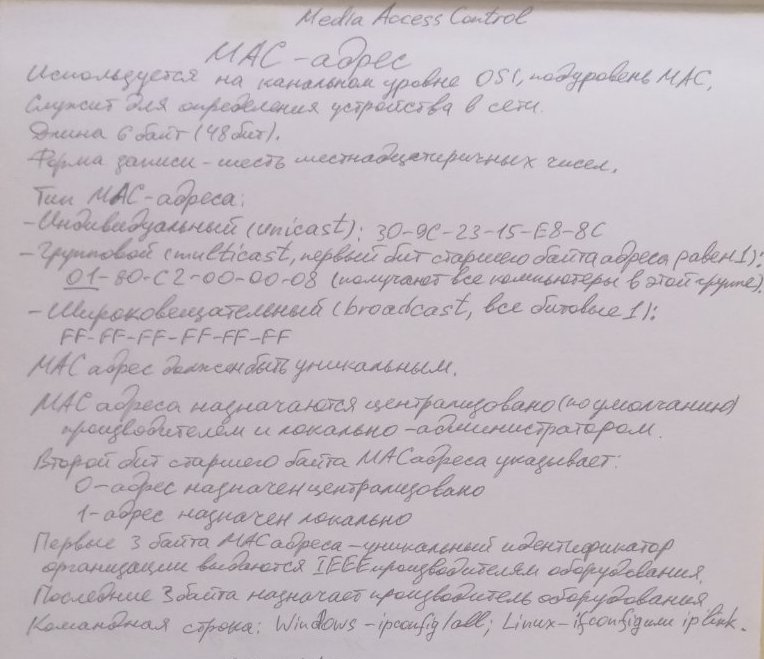 Media Access Control
MAC-адрес
Используется на канальном уровне OSI, подуровень MAC.
Служит для определения устройства в сети.
Длина 6 байт (48 бит).
Форма записи - шесть шестнадцатеричных чисел.
Тип MAC-адреса:
-Индивидуальный (unicast): 30-9C-23-15-E8-8C
-Групповой (multicast, первый бит старшего байта адреса равен 1):
01-80-C2-00-00-08 (получают все компьютеры в этой группе).
-Широковещательный (broadcast, все битовые 1):
FF-FF-FF-FF-FF-FF
MAC адрес должен быть уникальным.
MAC адреса назначаются централизовано (по умолчанию)
производителем и локально - администратором.
Второй бит старшего байта MAC адреса указывает:
0-адрес назначен централизовано
1-адрес назначен локально
Первые 3 байта MAC адреса - уникальный идентификатор
организации выдаются IEEE производителям оборудования.
Последние 3 байта назначает производитель оборудования
Командная строка: Windows - ipconfig/all; Linux - ifconfig или ip link.